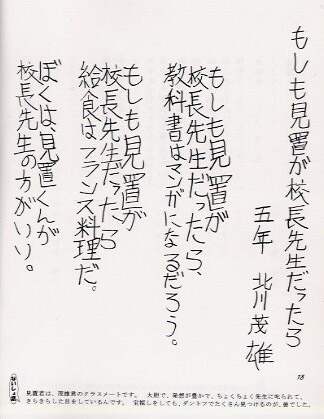 もしも見置が校長先生だったら
五年 北川茂雄
もしも見置が
校長先生だったら、
教科書はマンガになるだろう。
もしも見置が
校長先生だったら
給食はフランス料理だ。
ぼくは、見置くんが
校長先生の方がいい。
18
ないしょ話
見置君は、茂雄君のクラスメートです。 大胆で、発想が豊かで、ちょくちょく先生に叱られて、
きらきらした目をしているんです。 宝探しをしても、ダントツでたくさん見つけるのが、彼でした。